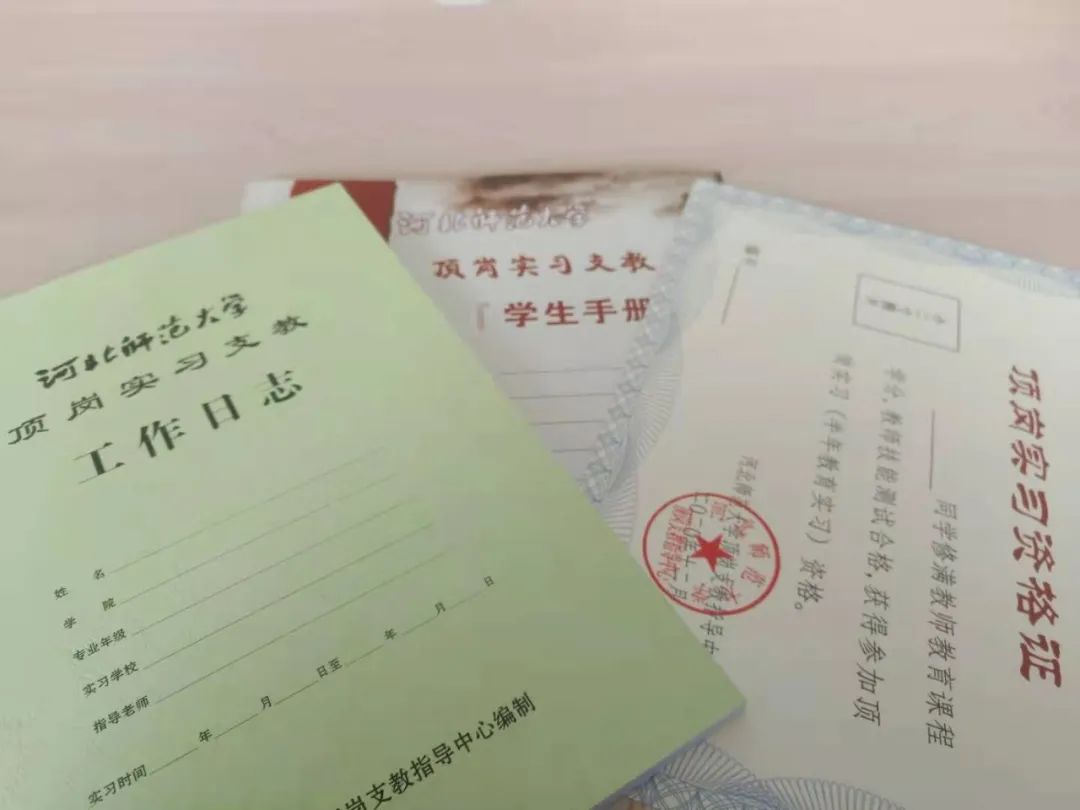 河北师范大学
顶岗实习支教
工作日志
姓 名
学 院
专业年级
实习学校
指导老师
实习时间 年 月 日至 年 月 日
岗支教指导中心编制
河北师范大学
顶岗实习支教
学生手册
顶岗实习资格证
同学修满教师教育课程
学分,教师技能测试合格,获得参加顶
岗实习(半年教育实习)资格。
河北师范大学顶岗支教指导中
二〇二〇年十二月